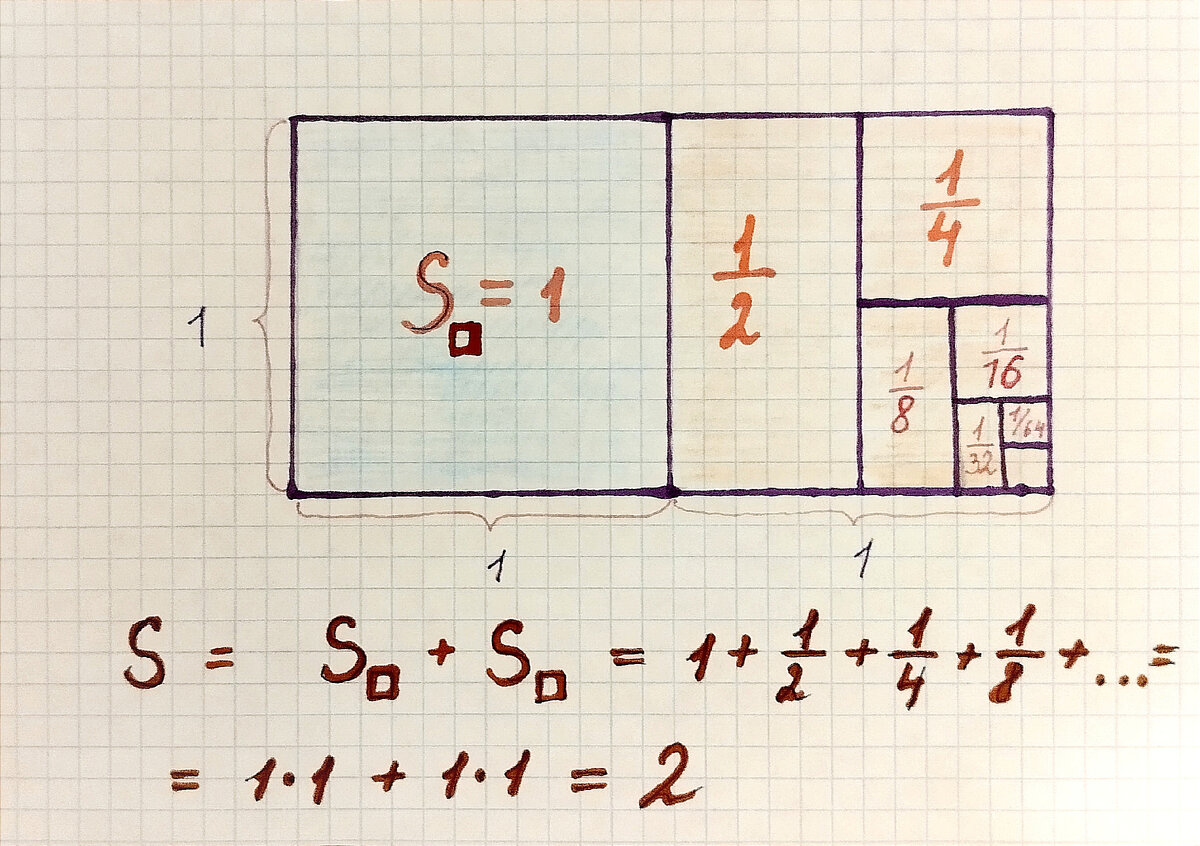 S□ = 1
1/2
1/4
1/8
1/16
1/32
1/64
1
1
1
S = S□ + S□ = 1 + 1/2 + 1/4 + 1/8 + ... =
= 1·1 + 1·1 = 2